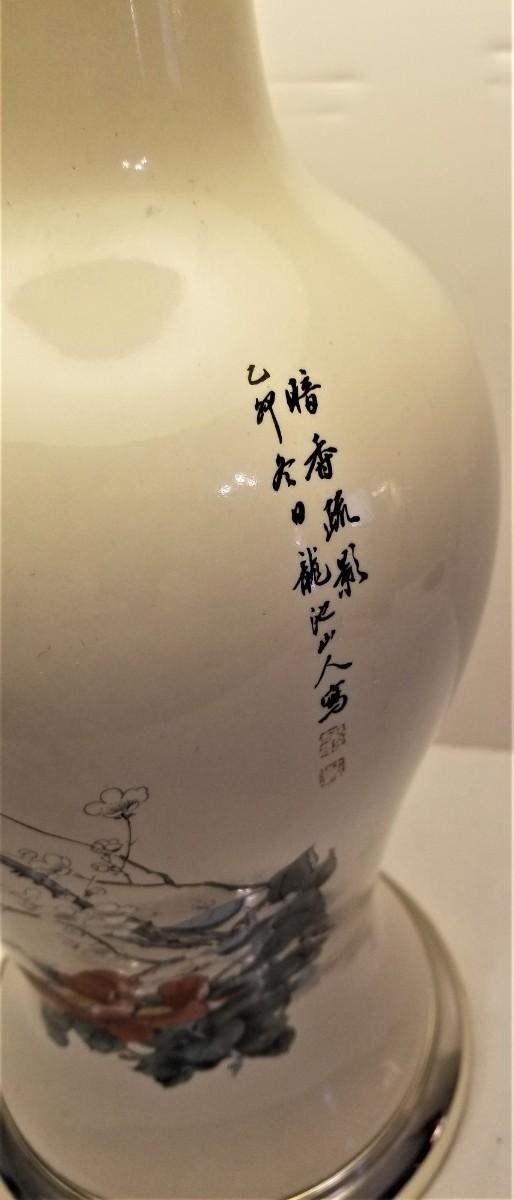 暗香疏影
乙卯冬日龍池山人寫